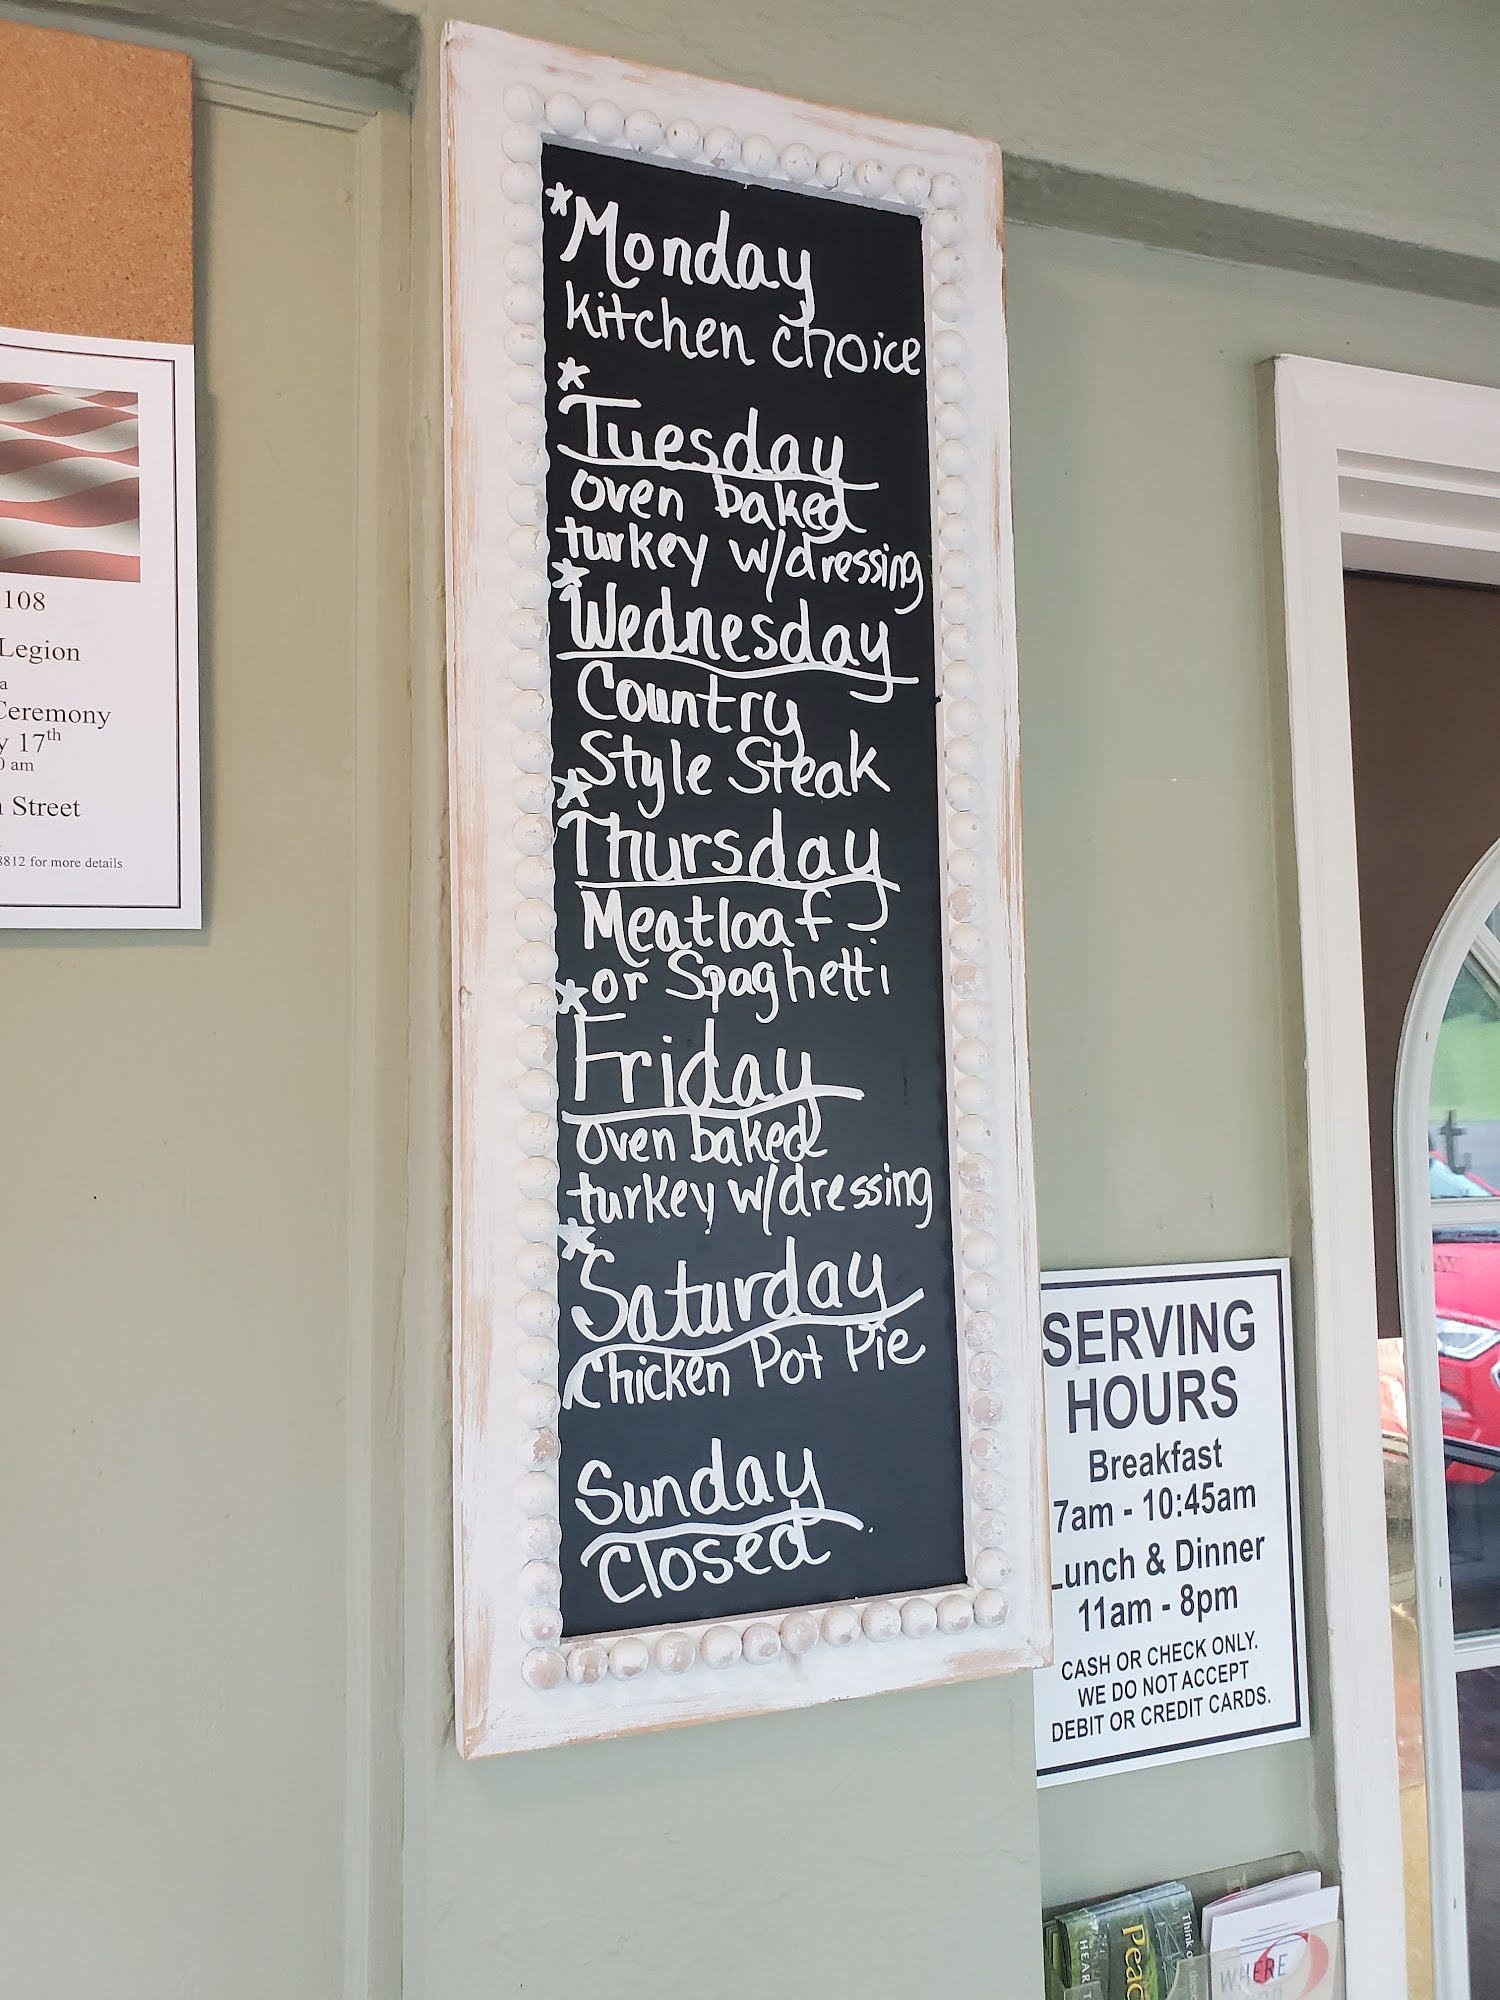 *Monday
kitchen choice
*
Tuesday
oven baked
turkey w/dressing
*
Wednesday
Country
Style Steak
*
Thursday
Meatloaf
or Spaghetti
*
Friday
oven baked
turkey w/dressing
*
Saturday
Chicken Pot Pie
Sunday
Closed
108
Legion
a
Ceremony
y 17th
0 am
n Street
8812 for more details
SERVING
HOURS
Breakfast
7am - 10:45am
Lunch & Dinner
11am - 8pm
CASH OR CHECK ONLY.
WE DO NOT ACCEPT
DEBIT OR CREDIT CARDS.
Think
WHERE